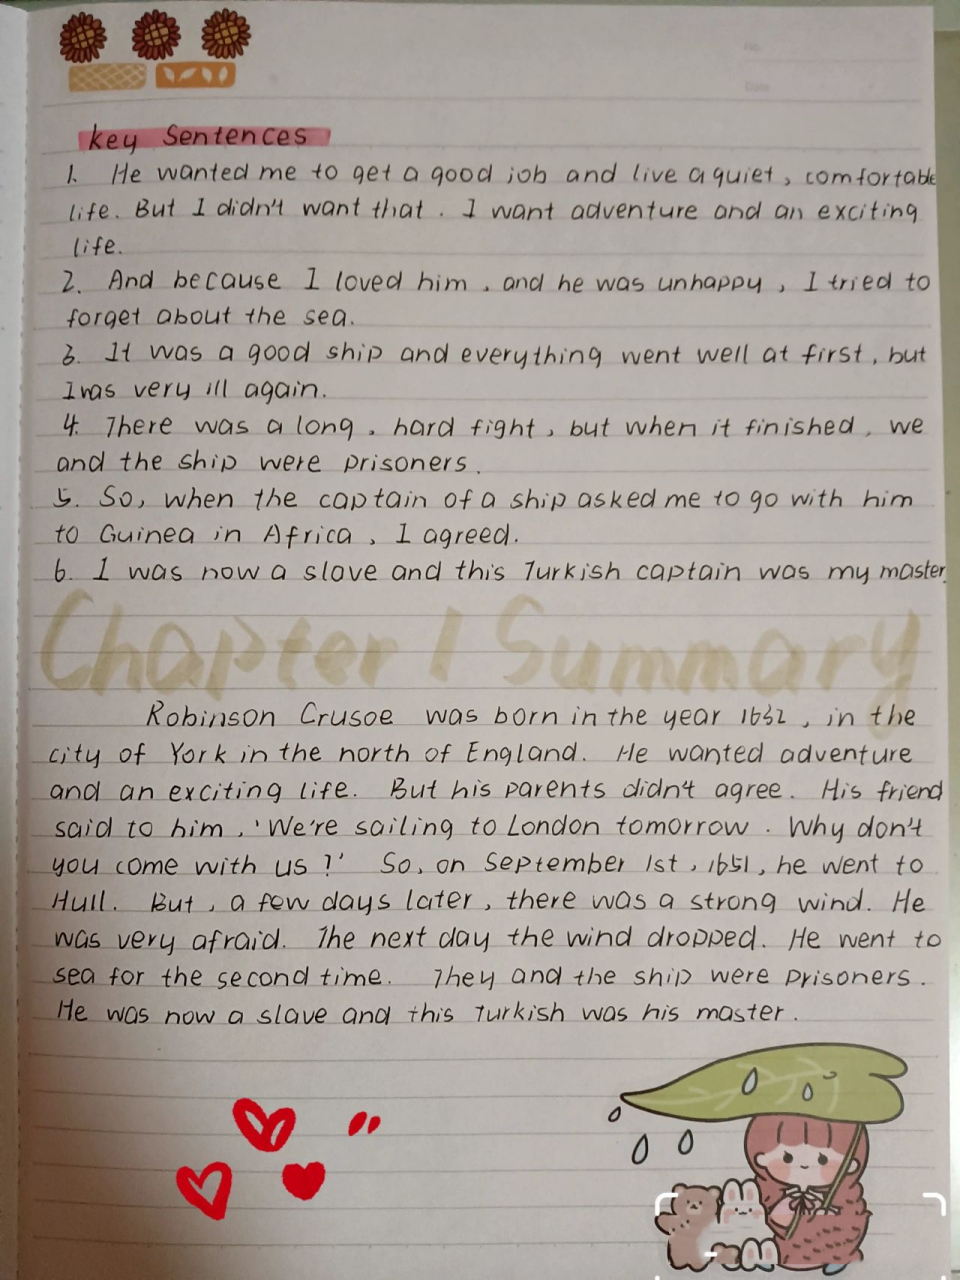 No.
Date
key Sentences
1. He wanted me to get a good job and live a quiet, comfortable
life. But I didn't want that. I want adventure and an exciting
life.
2. And because I loved him, and he was unhappy, I tried to
forget about the sea.
3. It was a good ship and everything went well at first, but
I was very ill again.
4. There was a long, hard fight, but when it finished, we
and the ship were prisoners.
5. So, when the captain of a ship asked me to go with him
to Guinea in Africa, I agreed.
6. I was now a slave and this Turkish captain was my master.
Chapter 1 Summary
Robinson Crusoe was born in the year 1632, in the
city of York in the north of England. He wanted adventure
and an exciting life. But his parents didn't agree. His friend
said to him, 'We're sailing to London tomorrow. Why don't
you come with us?' So, on September 1st, 1651, he went to
Hull. But, a few days later, there was a strong wind. He
was very afraid. The next day the wind dropped. He went to
sea for the second time. They and the ship were prisoners.
He was now a slave and this Turkish was his master.